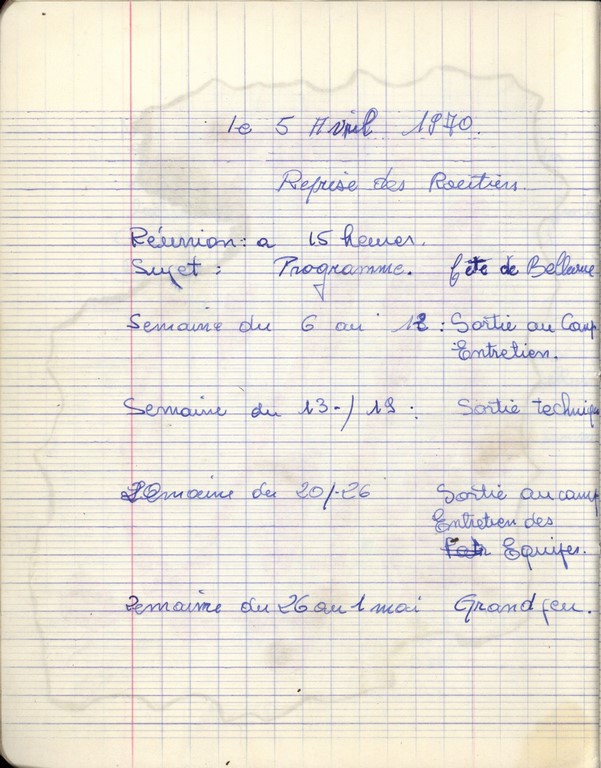 le 5 Avril 1970.
Reprise des Routiers.
Réunion: a 15 heures.
Sujet: Programme. fête de Bellevue
Semaine du 6 au 12: Sortie au Camp
Entretien.
Semaine du 13-/19: Sortie techniq
Semaine du 20/-26 Sortie au camp
Entretien des
Equipes.
Semaine du 26 au 1 mai Grand feu.